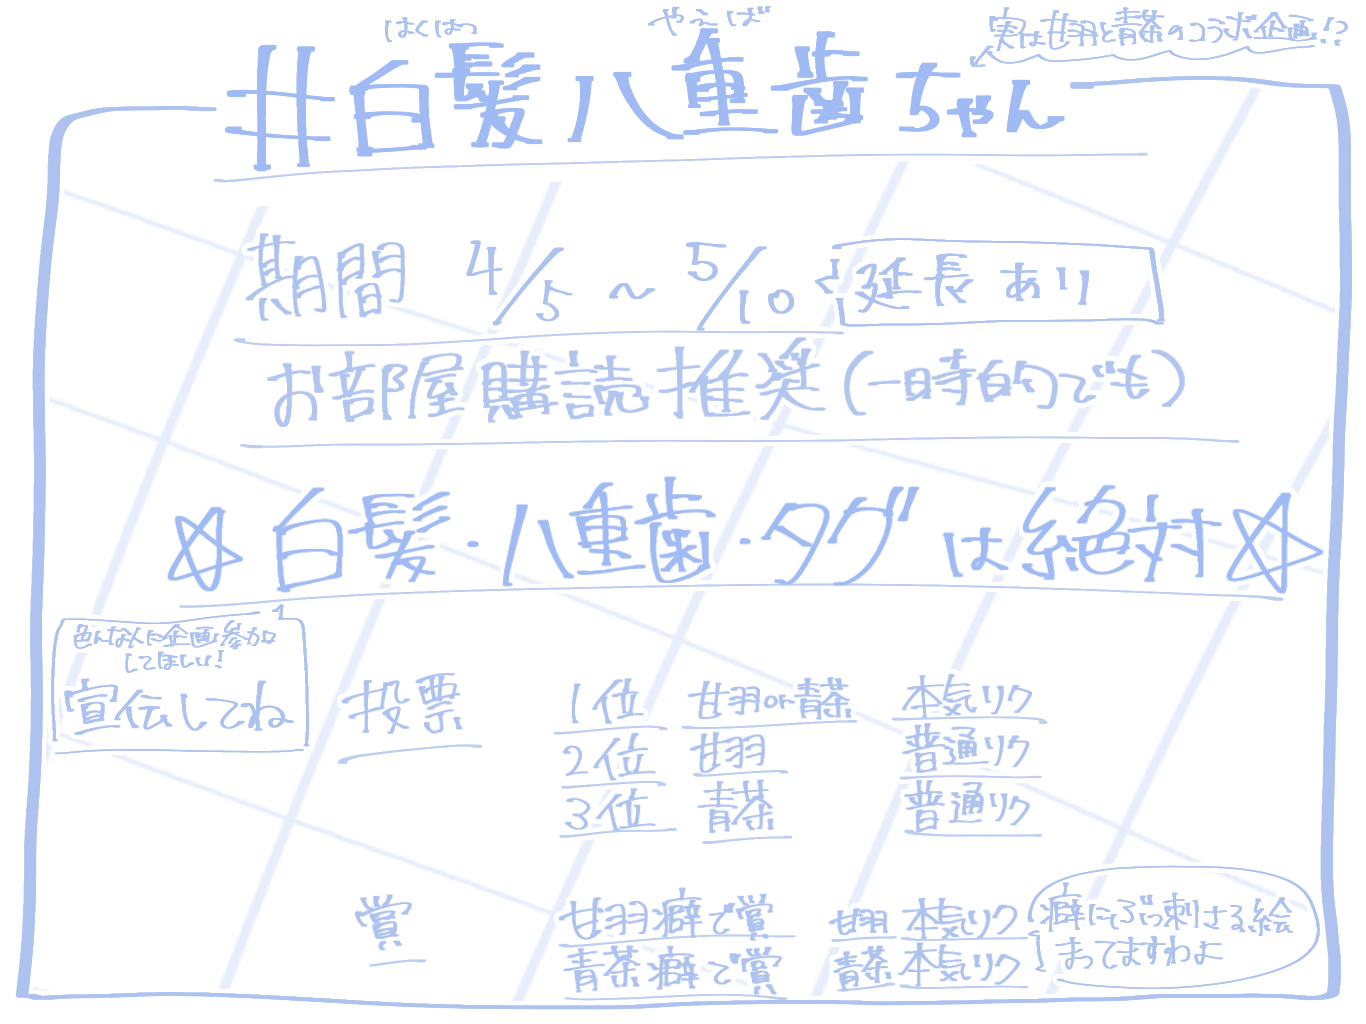 はくはつ やえば
実は甘羽と青茶のコラボ企画!?
#白髪八重歯ちゃん
期間 4/5 ~ 5/10 延長あり
お部屋購読推奨(一時的でも)
☆白髪・八重歯・タグは絶対☆
色んな人に企画参加
してほしい!
宣伝してね
投票 1位 甘羽or青茶 本気リク
2位 甘羽 普通リク
3位 青茶 普通リク
賞 甘羽癖で賞 甘羽 本気リク
青茶癖で賞 青茶 本気リク
癖にぶっ刺さる絵
まってますわよ